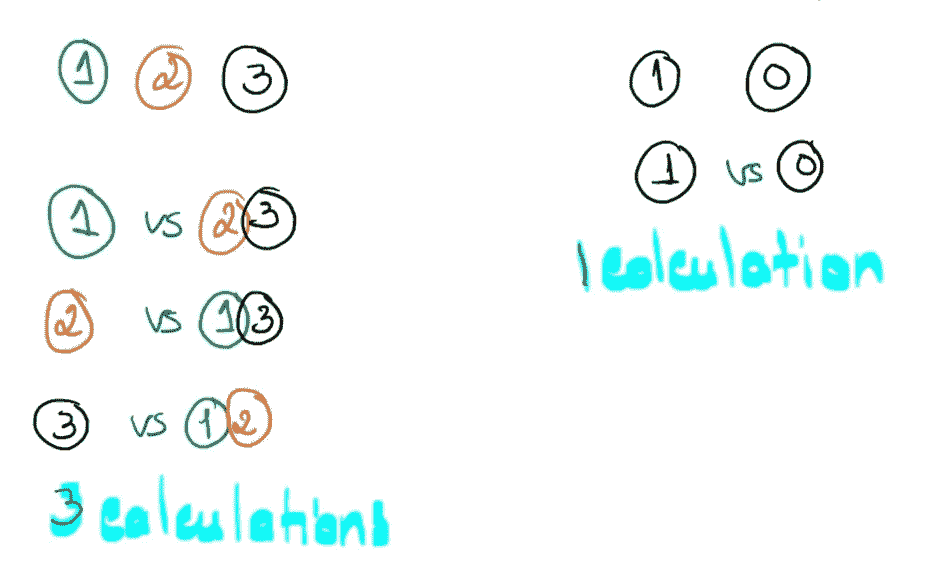 1 2 3
1 vs 2 3
2 vs 1 3
3 vs 1 2
3 calculations
1 0
1 vs 0
1 calculation